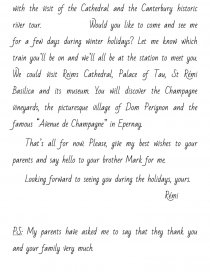 with the visit of the Cathedral and the Canterbury historic
river tour. Would you like to come and see me
for a few days during winter holidays? Let me know which
train you'll be on and we'll all be at the station to meet you.
We could visit Reims Cathedral, Palace of Tau, St Rémi
Basilica and its museum. You will discover the Champagne
vineyards, the picturesque village of Dom Perignon and the
famous "Avenue de Champagne" in Epernay.
That's all for now. Please, give my best wishes to your
parents and say hello to your brother Mark for me.
Looking forward to seeing you during the holidays, yours.
Rémi
P.S: My parents have asked me to say that they thank you
and your family very much.